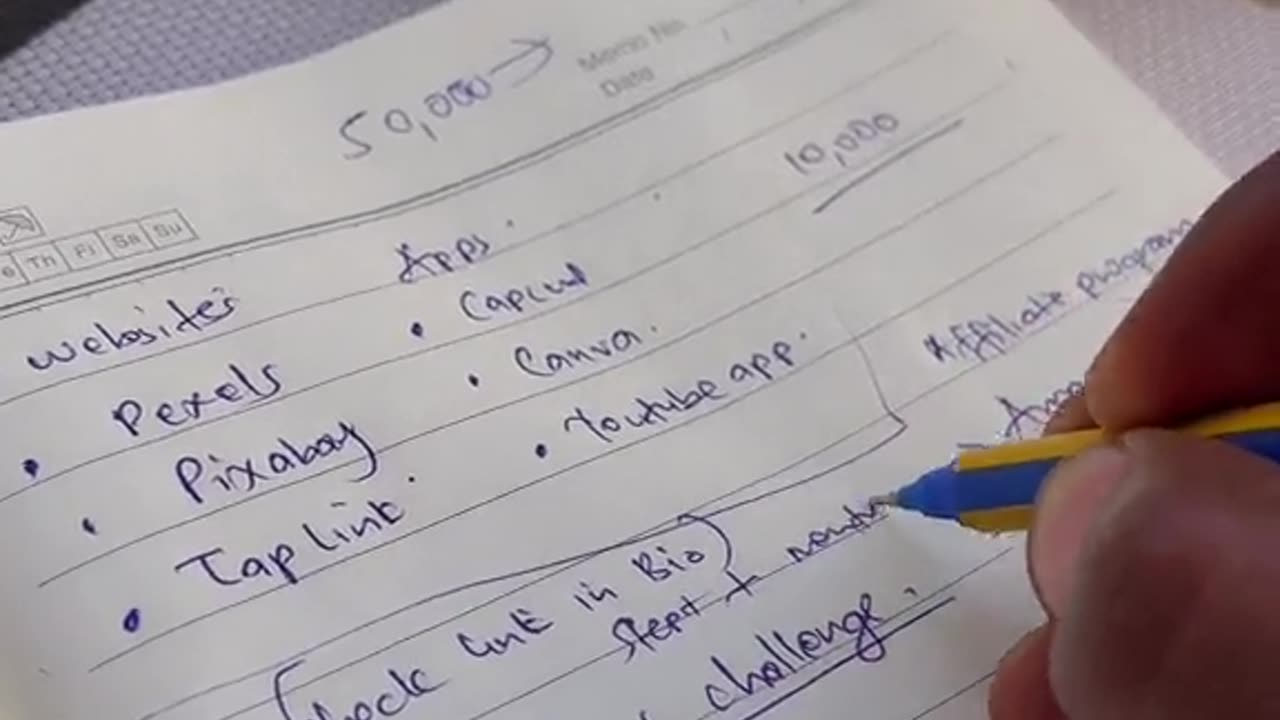 50,000 →
Memo No.
Date
10,000
e Th Fr Sa Su
Websites
Apps.
• Pexels
• Capcut
• Pixabay
• Canva.
• Tap link.
• Youtube app.
Affiliate program
(lock link in Bio)
+
challenge.